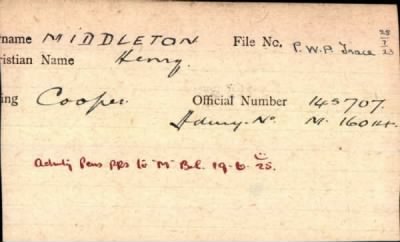 rname MIDDLETON File No. P.W.P. Trace 25/7/23
ristian Name Henry.
ing Cooper. Official Number 145707.
Admy. No. M. 16014.
Admty Pens PPs to "M" Bel. 19-6-25.